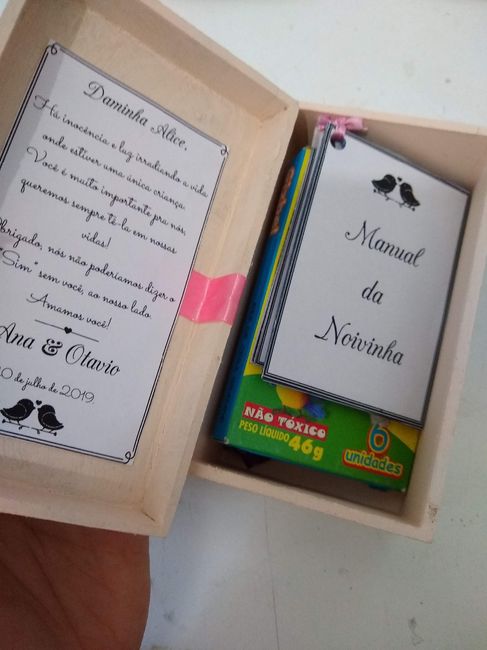 Daminha Alice,
Há inocência e luz irradiando a vida
onde estiver uma única criança.
Você é muito importante pra nós,
queremos sempre tê-la em nossas
vidas!
Obrigado, nós não poderíamos dizer o
"Sim" sem você, ao nosso lado.
Amamos você!
Ana & Otavio
0 de julho de 2019.
Manual
da
Noivinha
NÃO TÓXICO
PESO LÍQUIDO 46g
6
unidades